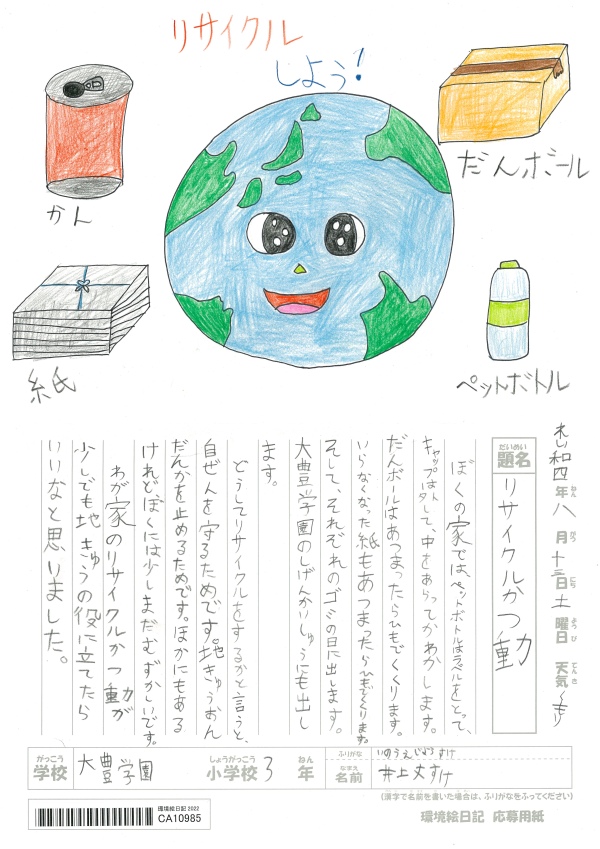 リサイクル
しよう!
かん
だんボール
紙
ペットボトル
れい和四年八月十三日土曜日 天気くもり
ねん がつ にち ようび てんき
だいめい
題名 リサイクルかつ動
ぼくの家では、ペットボトルはラベルをとって、
キャップは外して、中をあらってかわかします。
だんボールはあつまったらひもでくくります。
いらなくなった紙もあつまったらひもでくくります。
そして、それぞれのゴミの日に出します。
大豊学園のしげんかいしゅうにも出し
ます。
どうしてリサイクルをするかと言うと、
自ぜんを守るためです。地きゅうおん
だんかを止めるためです。ほかにもある
けれど、ぼくには少しまだむずかしいです。
わが家のリサイクルかつ動が
少しでも地きゅうの役に立てたら
いいなと思いました。
がっこう しょうがっこう ねん
学校 大豊学園 小学校 3 年
ふりがな いのうえじょうすけ
なまえ
名前 井上丈すけ
(漢字で名前を書いた場合は、ふりがなをふってください)
環境絵日記 2022
CA10985
環境絵日記 応募用紙